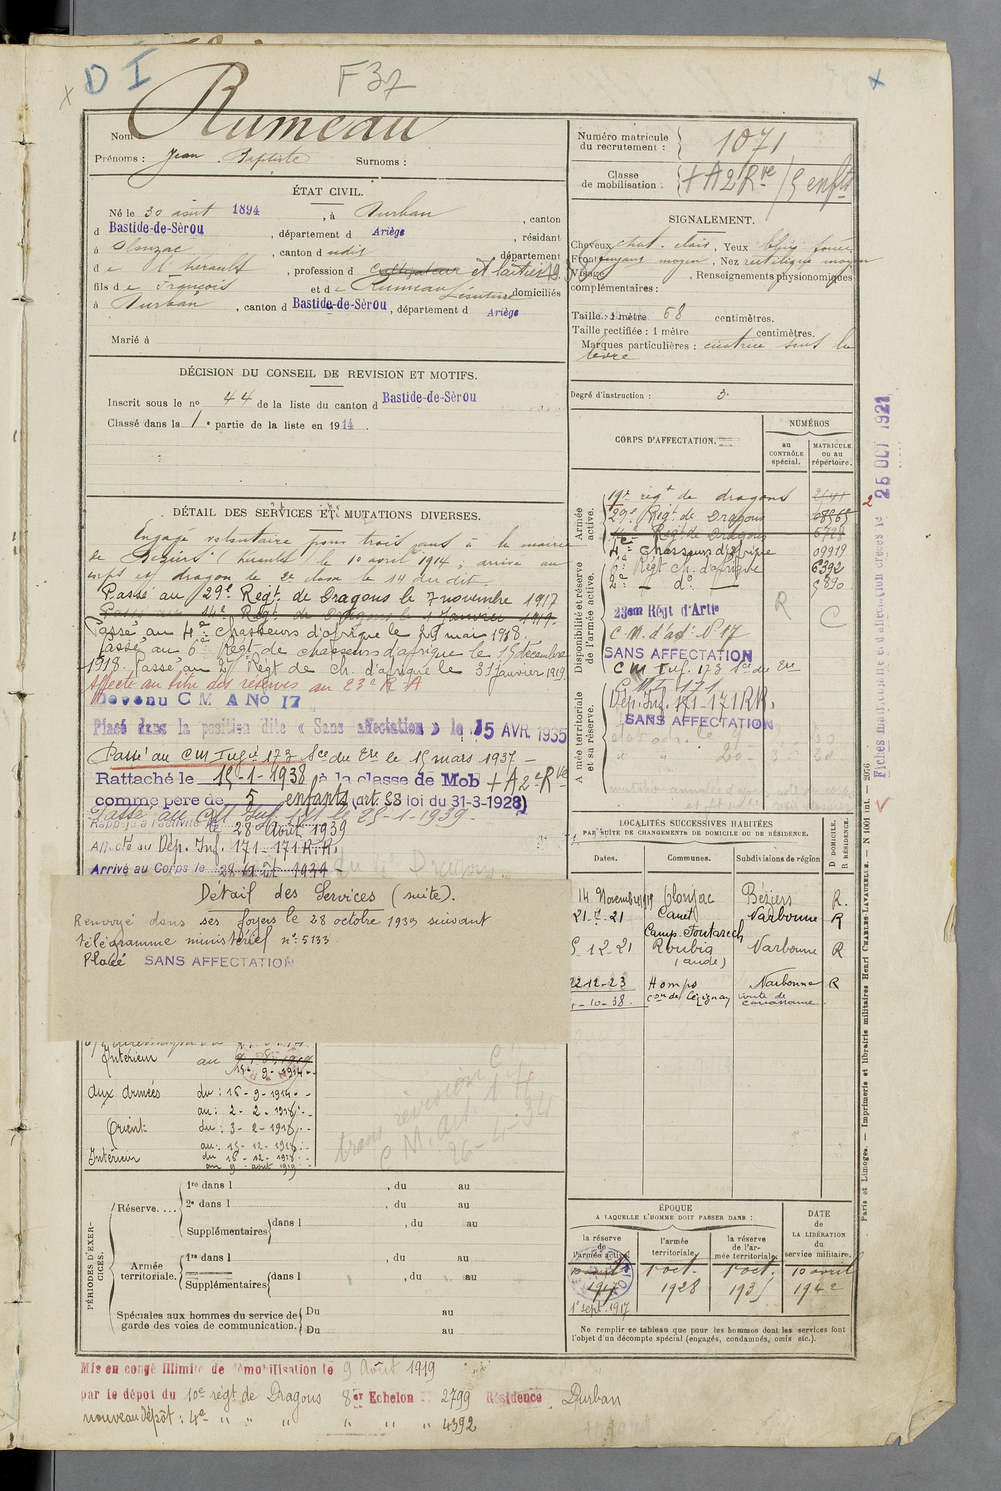 D I
F37
Nom Rumeau
Prénoms : Jean Baptiste Surnoms :
ÉTAT CIVIL.
Né le 30 août 1894, à Durban, canton
d Bastide-de-Sèrou, département d Ariège, résidant
à Olonzac, canton d udis, département
d e l'hérault, profession d cultivateur et laitier
fils d e François et d e Rumeau Lésutine domiciliés
à Durban, canton d Bastide-de-Sèrou, département d Ariège
Marié à
DÉCISION DU CONSEIL DE REVISION ET MOTIFS.
Inscrit sous le no 44 de la liste du canton d Bastide-de-Sèrou
Classé dans la 1e partie de la liste en 1914.
DÉTAIL DES SERVICES ET MUTATIONS DIVERSES.
Engagé volontaire pour trois ans à la mairie
de Béziers (hérault) le 10 avril 1914 ; arrivé au
corps et dragon de 2e classe le 14 du dit
Passé au 29e Régt. de Dragons le 7 novembre 1917
Passé au 14e Régt. de Dragons le 1 Janvier 1919.
Passé au 4e chasseurs d'afrique le 28 mai 1918.
Passé au 6e Régt. de chasseurs d'afrique le 15 décembre
1918. Passé au 2e Régt de Ch. d'afrique le 31 janvier 1919
Affecté au titre des réserves au 23e R A
Devenu C M A No 17
Placé dans la position dite « Sans affectation » le 15 AVR. 1935
Passé au CM Infie 173 Sce du Ere le 15 mars 1937
Rattaché le 15-1-1938 à la classe de Mob + A 2e Rve
comme père de 5 enfants (art. 58 loi du 31-3-1928)
Passé au CM Inf. 171 le 25-1-1939.
Rappelé à l'activité le 28 Août 1939
Affecté au Dép. Inf. 171-171 R.R.
Arrivé au Corps le 28 août 1939
Détail des Services (suite).
Renvoyé dans ses foyers le 28 octobre 1939 suivant
télégramme ministériel no: 5133.
Placé SANS AFFECTATION
Intérieur au 9-8-1919
15-9-1914
Aux armées du : 16-9-1914
au : 2-2-1918
Orient du : 3-2-1918
au : 15-12-1918
Intérieur du 16-12-1918
au 9 août 1919
trans. révision C
C M. art. 17
26-4-34
PÉRIODES D'EXERCICES.
Réserve....
1re dans l , du au
2e dans l , du au
Supplémentaires dans l , du au
Armée territoriale.
1re dans l , du au
Supplémentaires dans l , du au
Spéciales aux hommes du service de garde des voies de communication.
Du au
Du au
Numéro matricule du recrutement : 1071
Classe de mobilisation : + A 2 Rve / 5 enfts
SIGNALEMENT.
Cheveux chat. clair, Yeux bleu foncé
Front fuyant moyen, Nez rectiligne moyen
Visage , Renseignements physionomiques
complémentaires :
Taille : 1 mètre 68 centimètres.
Taille rectifiée : 1 mètre centimètres.
Marques particulières : cicatrice sous la
lèvre
Degré d'instruction : 3.
CORPS D'AFFECTATION.
NUMÉROS
au CONTRÔLE spécial.
MATRICULE ou au répertoire.
Armée active.
19e régt de dragons
29e Régt de Dragons
14e Régt de Dragons 6728
4e chasseurs d'afrique 09919
6e Régt ch. d'afrique 6392
2e — do —
Disponibilité et réserve de l'armée active.
23em Régt d'Artie
C M. d'art. No 17
SANS AFFECTATION
C M Inf. 173 Sce du Ere
C M I 171
Armée territoriale et sa réserve.
Dép. Inf. 171-171 R.R.
SANS AFFECTATION
R
C
LOCALITÉS SUCCESSIVES HABITÉES
PAR SUITE DE CHANGEMENTS DE DOMICILE OU DE RÉSIDENCE.
Dates. Communes. Subdivisions de région D DOMICILE. R RÉSIDENCE.
14 Novembre 1919 Olonzac Béziers R.
21-7-21 Canet Narbonne R
Camp. Fontarech
5-12-21 Roubia (aude) Narbonne R
22-12-23 Homps Narbonne R
-10-38. con de Lézignan Carcassonne.
ÉPOQUE
A LAQUELLE L'HOMME DOIT PASSER DANS :
la réserve de l'armée active
l'armée territoriale
la réserve de l'armée territoriale
DATE de LA LIBÉRATION du service militaire.
10 avril 1917 1 oct. 1928 1 oct. 1935 10 avril 1942
1 sept. 1917
Ne remplir ce tableau que pour les hommes dont les services font
l'objet d'un décompte spécial (engagés, condamnés, omis etc.).
Mis en congé illimité de démobilisation le 9 Août 1919
par le dépôt du 10e régt de Dragons 8er Echelon 2799 Résidence Durban
nouveau dépôt : 4e " " " " " " 4392
Fiches matricule et d'affectation créées le 25 OCT 1921
Paris et Limoges. — Imprimerie et librairie militaires Henri CHARLES-LAVAUZELLE. — N 1001 int. — 2976